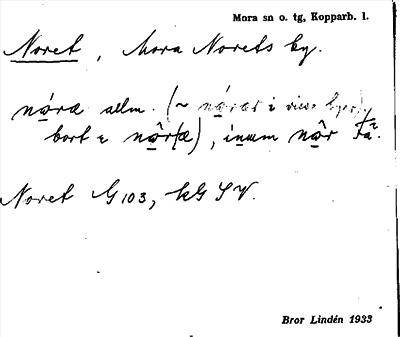 Mora sn o. tg, Kopparb. l.
Noret, Mora Norets by.
nó̱ræ allm. (~ nó̱rær i vissa byar,
bort e nô̱r(æ), ínum nô̱r
Noret G 103, kG SV.
Bror Lindén 1933